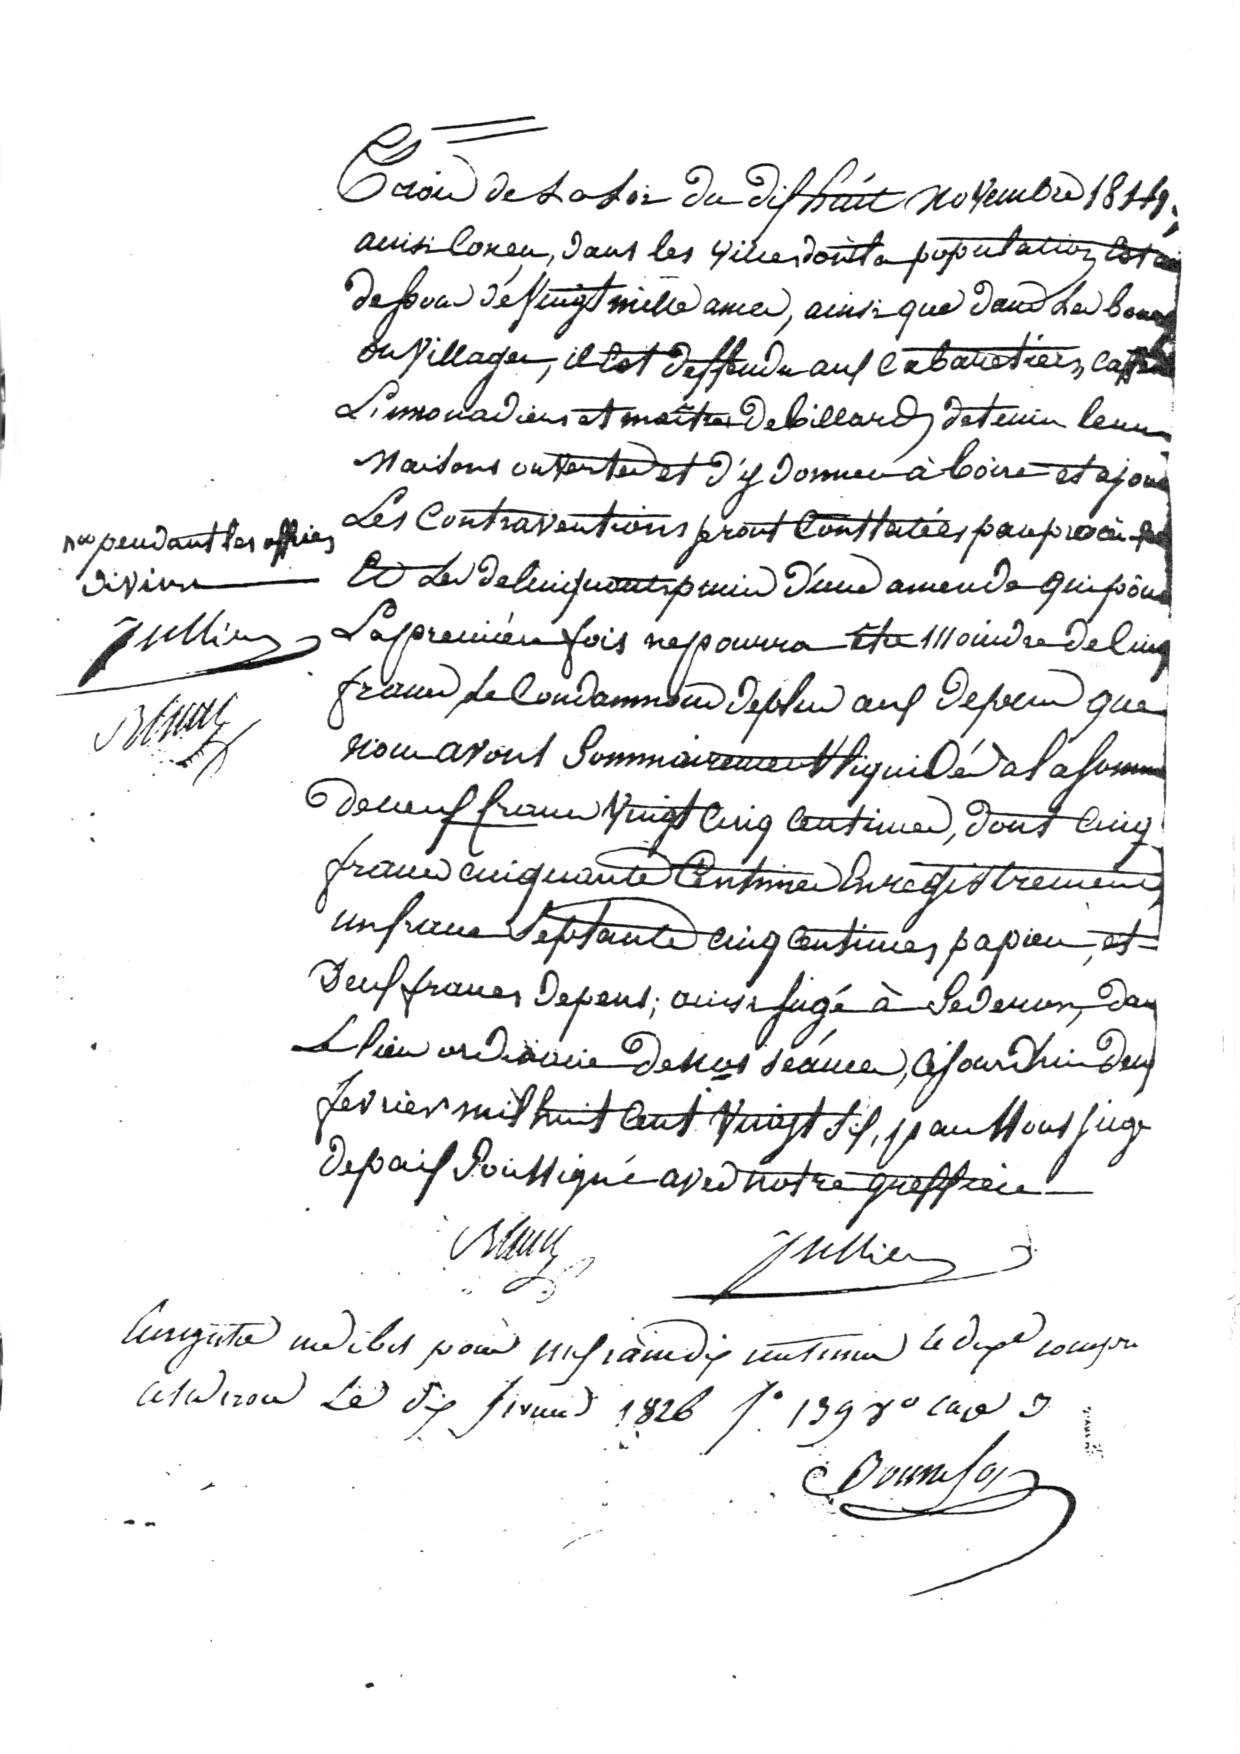 trois de la Loi du dix huit novembre 1814,
ainsi concu, dans les villes dont la population est au
dessous de vingt mille ames, ainsi que dans les bourgs
ou villages, il est deffendu aux cabaretiers, caff
Limonadiers et maitres de billards, de tenir leurs
Maisons ouvertes et d'y donner à boire et a jouer
nos pendant les offices
divins
Jullien
Les Contraventions seront Constatées par procès
Et Les delinquants punis d'une amende qui pour
La premiére fois ne pourra être Moindre de cinq
francs Le Condamnons de plus aux depens que
nous avons Sommairement liquidés a la somme
de neuf francs Vingt cinq centimes, dont cinq
francs cinquante Centimes Enregistrement,
un franc Septante cinq centimes papier, et
Deux francs depens; ainsi jugé à Sederon, dans
Le lieu ordinaire de nos séances, cejourdhui deux
fevrier mil huit cent Vingt six, par Nous juge
de paix Soussigné avec notre greffier
Jullien
Enregistré pour un franc dix centimes le dixe compris
Le dix fevrier 1826 f° 139 vo case
Bonnefoy